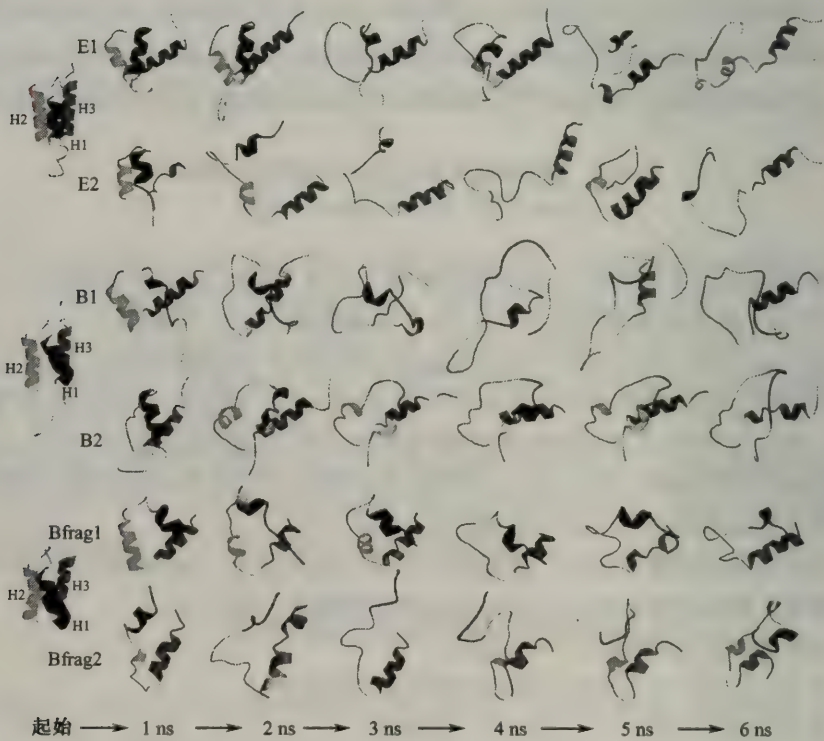 E1
H2
H3
H1
E2
B1
H2
H3
H1
B2
Bfrag1
H2
H3
H1
Bfrag2
起始 1 ns 2 ns 3 ns 4 ns 5 ns 6 ns